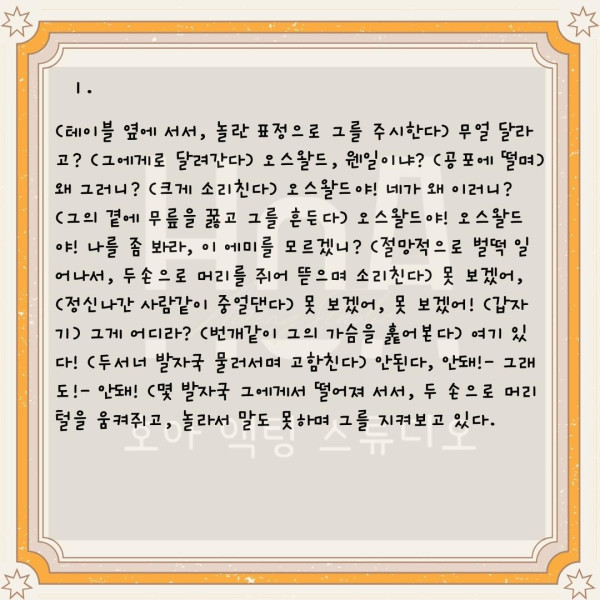 1.
(테이블 옆에 서서, 놀란 표정으로 그를 주시한다) 무얼 달라
고? (그에게로 달려간다) 오스왈드, 웬일이냐? (공포에 떨며)
왜 그러니? (크게 소리친다) 오스왈드야! 네가 왜 이러니?
(그의 곁에 무릎을 꿇고 그를 흔든다) 오스왈드야! 오스왈드
야! 나를 좀 봐라, 이 에미를 모르겠니? (절망적으로 벌떡 일
어나서, 두손으로 머리를 쥐어 뜯으며 소리친다) 못 보겠어,
(정신나간 사람같이 중얼댄다) 못 보겠어, 못 보겠어! (갑자
기) 그게 어디라? (번개같이 그의 가슴을 훑어본다) 여기 있
다! (두서너 발자국 물러서며 고함친다) 안된다, 안돼!- 그래
도!- 안돼! (몇 발자국 그에게서 떨어져 서서, 두 손으로 머리
털을 움켜쥐고, 놀라서 말도 못하며 그를 지켜보고 있다.
HoA
호아 액팅 스튜디오